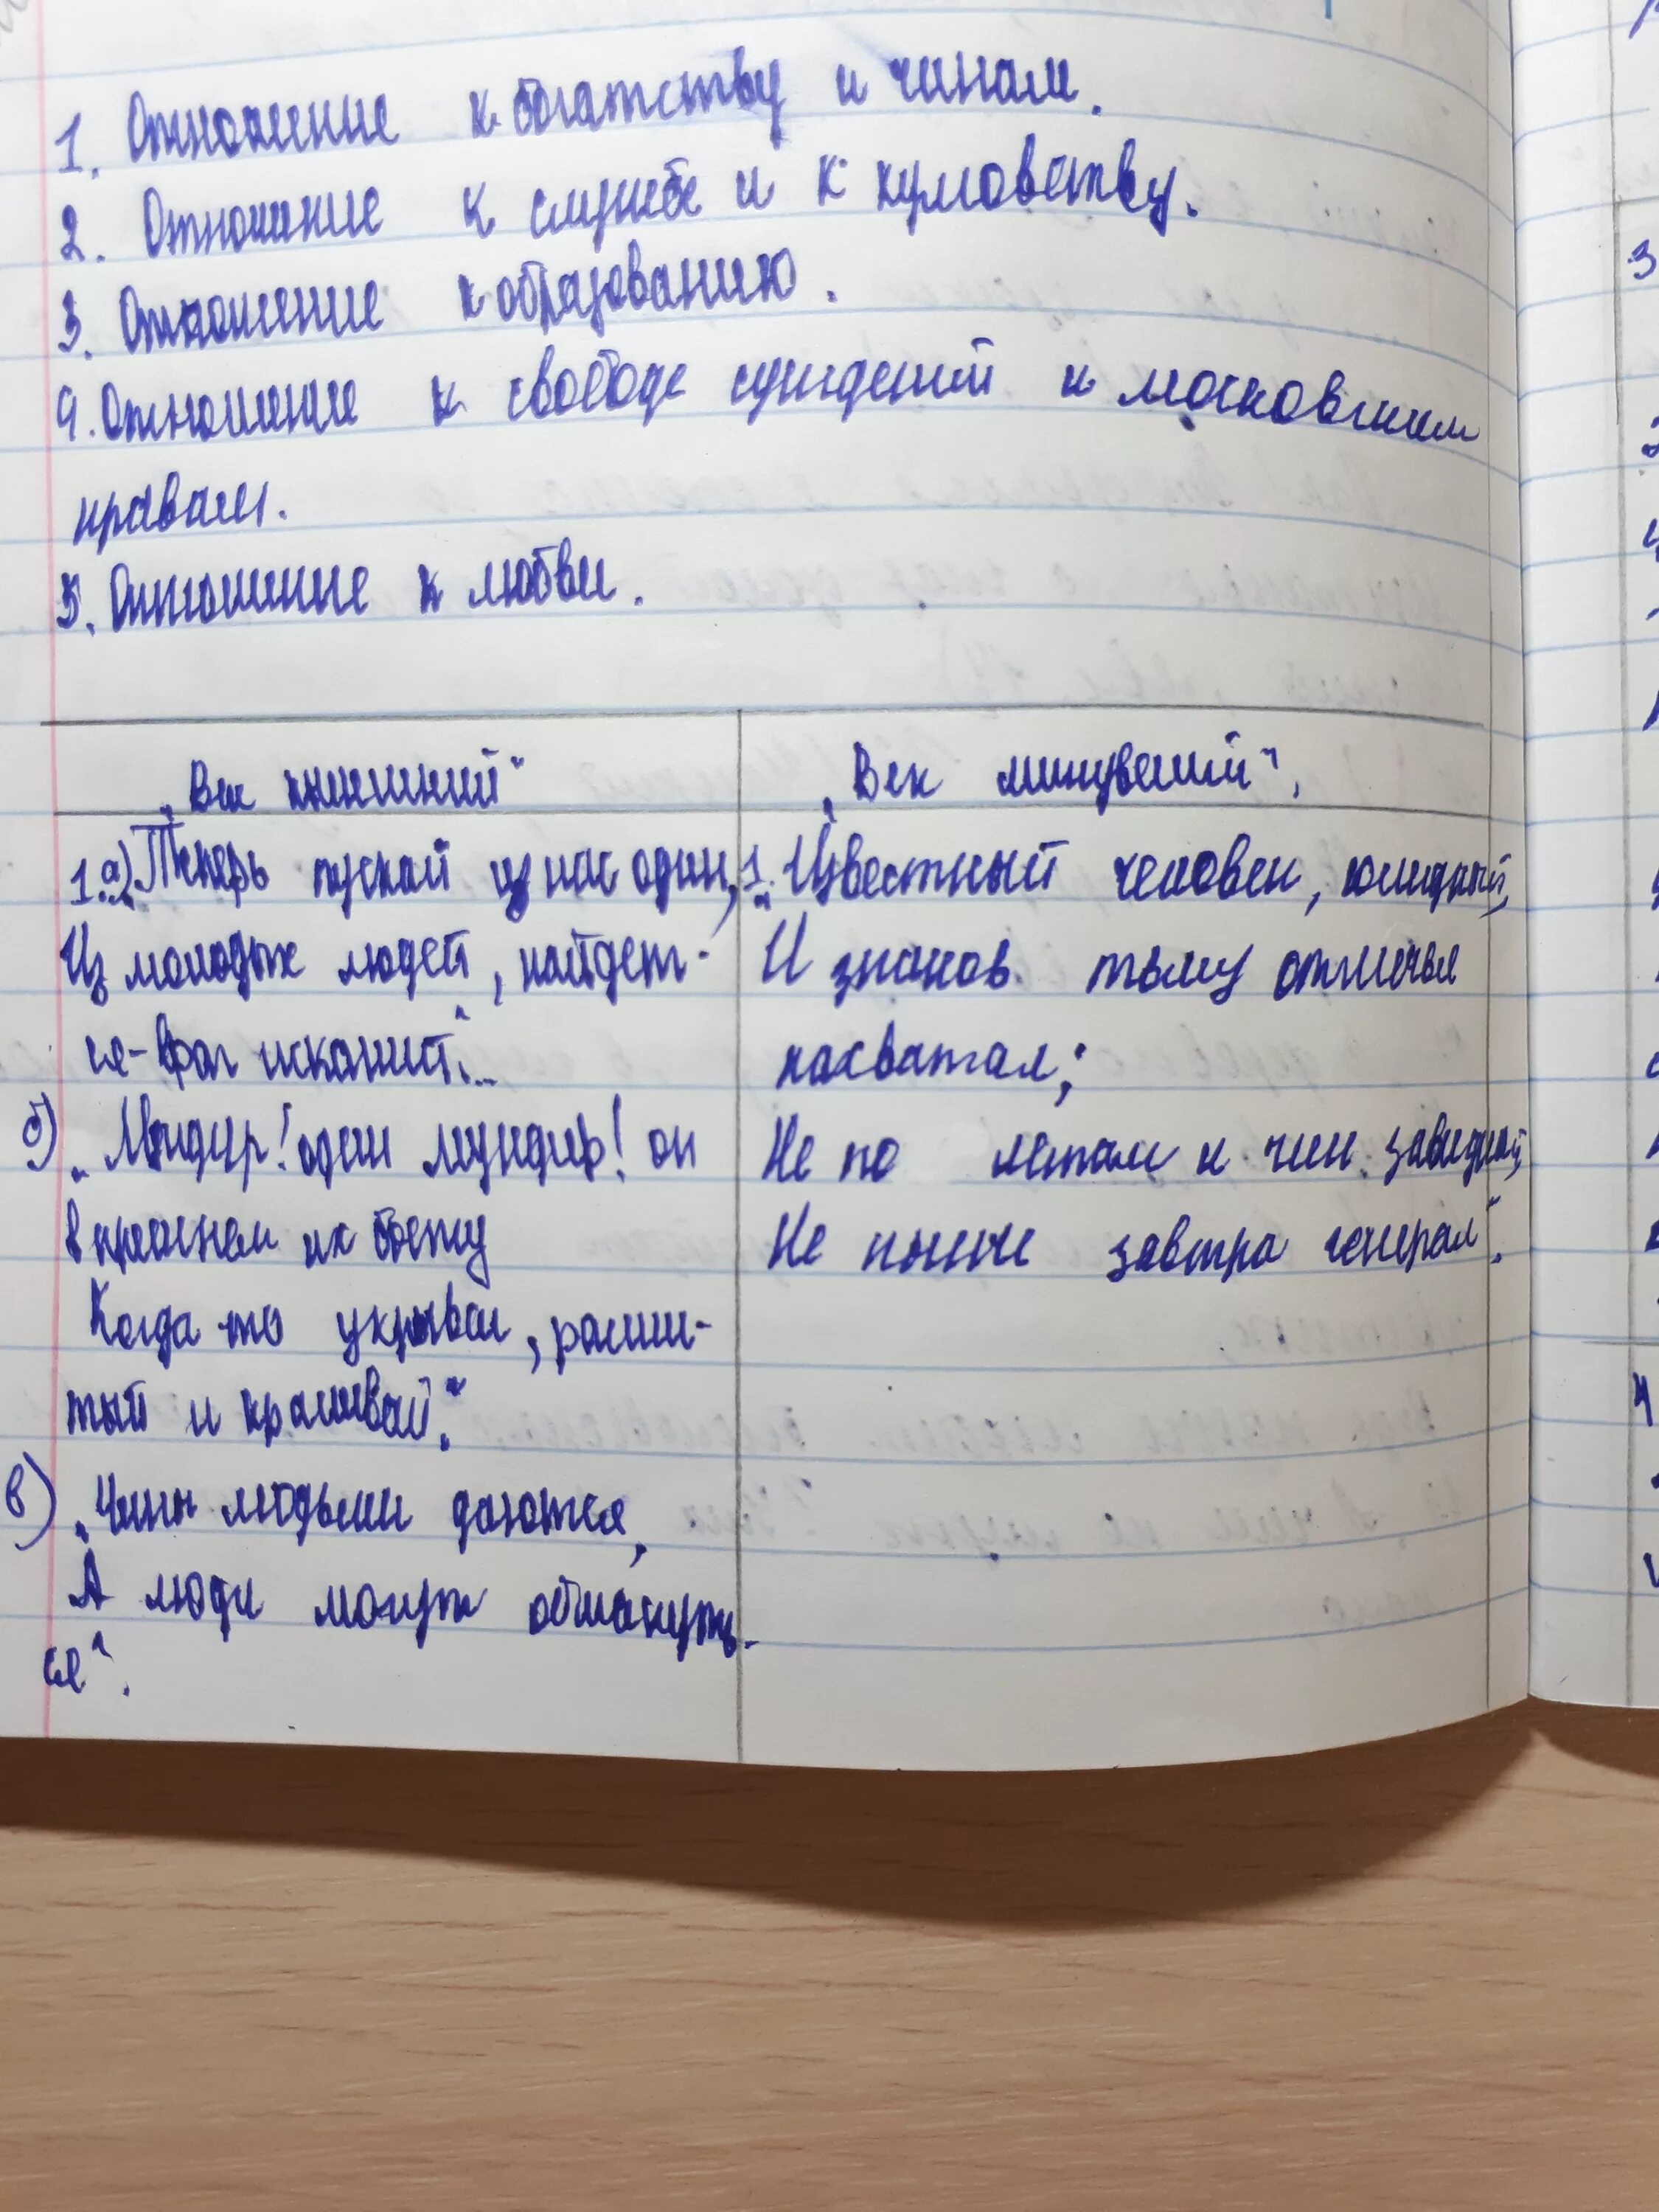 1. Отношение к богатству и чинам.
2. Отношение к службе и к кумовству.
3. Отношение к образованию.
4. Отношение к свободе суждений и московским
нравам.
5. Отношение к любви.
„Век нынешний“
1.а)„Теперь пускай из нас один,
Из молодых людей, найдет-
ся-враг исканий“...
б) „Мундир! один мундир! он
в прежнем их бЫту
Когда-то укрывал, расши-
тый и красивый“.
в) „Чины людьми даются,
А люди могут обмануть-
ся“.
„Век минувший“.
1. „Известный человек, солидный,
И знаков тьму отличья
нахватал;
Не по летам и чин завидный,
Не нынче завтра генерал“.
3
4